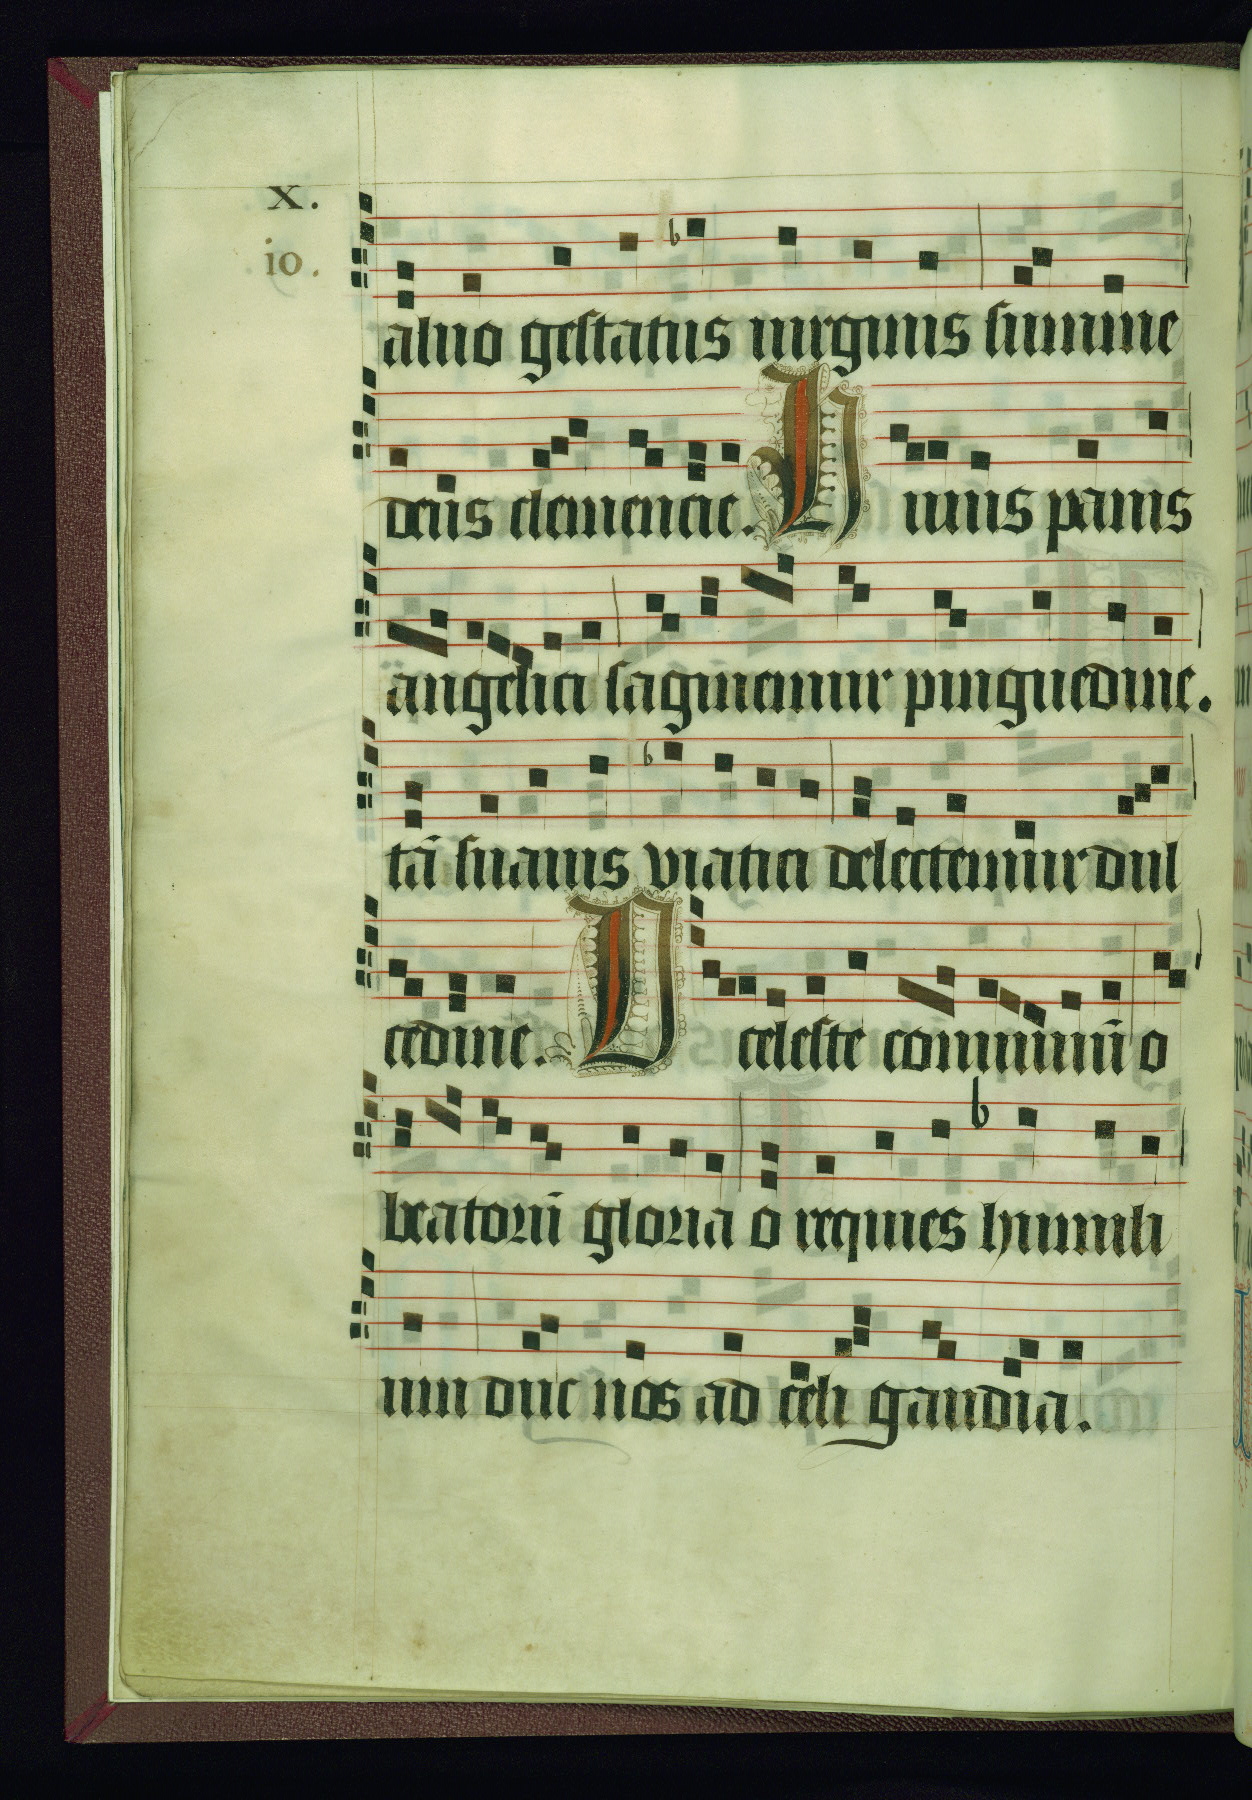 X.
10.
aluo gestatus uirginis summe
deus clemencie. Huius panis
angelici saginemur pinguedine.
tā suauis viatici delectemur dul
cedine. O celeste conuiuiū o
beatorū gloria o requies humili
um duc nos ad celi gaudia.